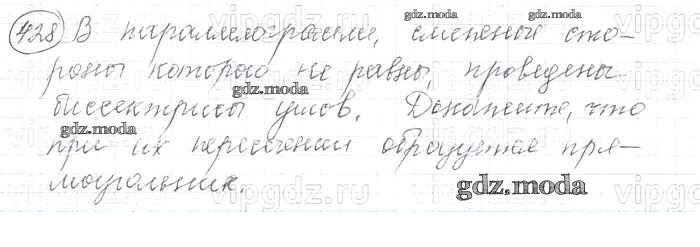 428 В параллелограмме, смежные сто-
роны которого не равны, проведены
биссектрисы углов. Докажите, что
при их пересечении образуется пря-
моугольник.
gdz.moda
gdz.moda
gdz.moda
gdz.moda
gdz.moda
vipgdz.ru